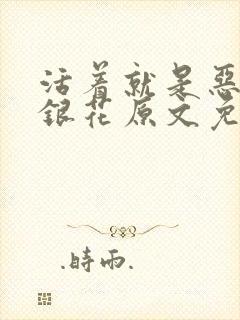 活着就是恶
銀花原文免
.時雨.